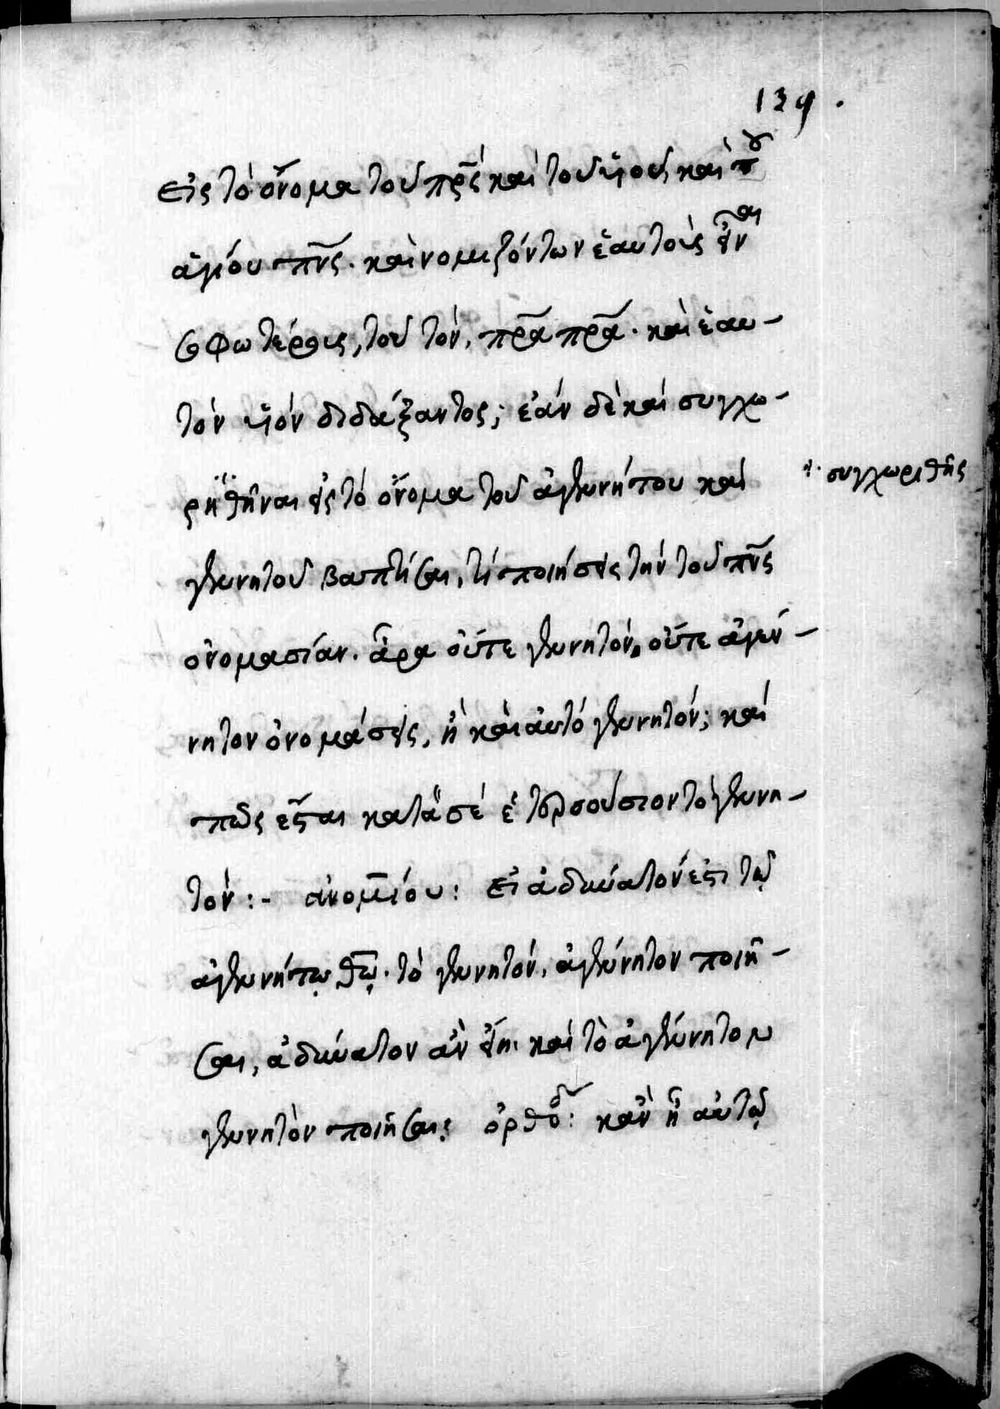 139.
εἰς τὸ ὄνομα τοῦ πρ̅ς καὶ τοῦ υἱοῦ, καὶ τοῦ
ἁγίου πν̅ς. καὶ νομιζόντων ἑαυτοὺς εἶναι
σοφωτέροις, τοῦ τὸν, πρ̅α πρ̅α. καὶ ἑαυ-
τὸν υἱὸν διδάξαντος; ἐάν δὲ καὶ συγχω-
ρηθῆναι εἰς τὸ ὄνομα τοῦ ἀγεννήτου καὶ
γεννητοῦ βαπτίσαι, τί ποιήσεις τὴν τοῦ πν̅ς
ὀνομασίαν. ἆρα οὔτε γεννητόν, οὔτε ἀγέν-
νητον ὀνομάσεις, ἢ καὶ αὐτό γεννητόν; καὶ
πῶς ἔσται κατὰ σέ ἑτερούσιον τὸ γεννη-
τόν:- ἀνομίου: εἰ ἀδύνατόν ἐστι τῷ
ἀγεννήτῳ θ̅ῳ. τὸ γεννητόν, ἀγέννητον ποιῆ-
σαι, ἀδύνατον ἂν εἴη καὶ τὸ ἀγέννητον
γεννητὸν ποιῆσαι; ὀρθοδ: κἂν ἦ αὐτῷ
συγχωριθῆς